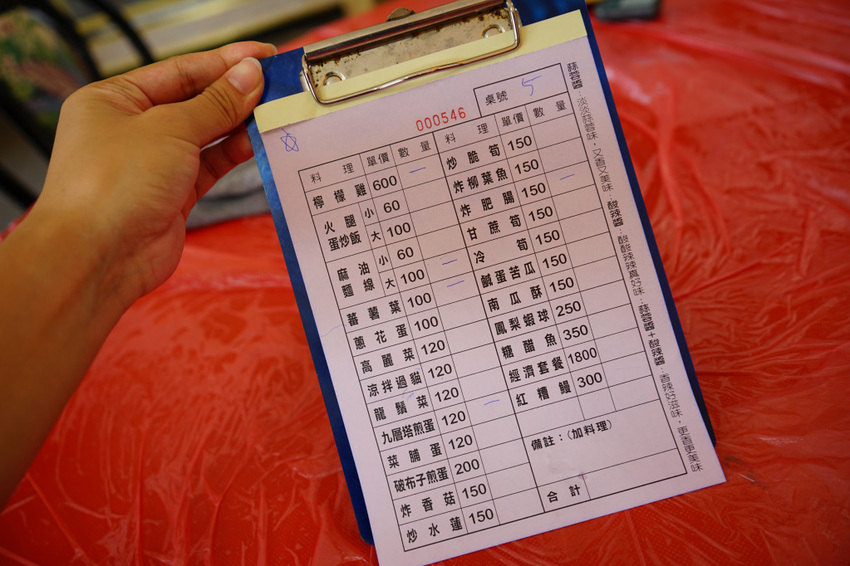 000546
桌號 5
料理 單價 數量
檸檬雞 600 一
火腿蛋炒飯 小 60
大 100
麻油麵線 小 60
大 100 一
蕃薯葉 100 一
蔥花蛋 100
高麗菜 120
涼拌過貓 120
龍鬚菜 120
九層塔煎蛋 120 一
菜脯蛋 120
破布子煎蛋 200
炸香菇 150
炒水蓮 150
料理 單價 數量
炒脆筍 150
炸柳葉魚 150
炸肥腸 150 一
甘蔗筍 150
冷筍 150
鹹蛋苦瓜 150
南瓜酥 150
鳳梨蝦球 250
糖醋魚 350
經濟套餐 1800
紅糟鰻 300
備註：(加料理)
合計
蒜蓉醬：淡淡蒜蓉味，又香又美味，酸辣醬：酸酸辣辣真好味，蒜蓉醬+酸辣醬：香辣好滋味，更香更美味